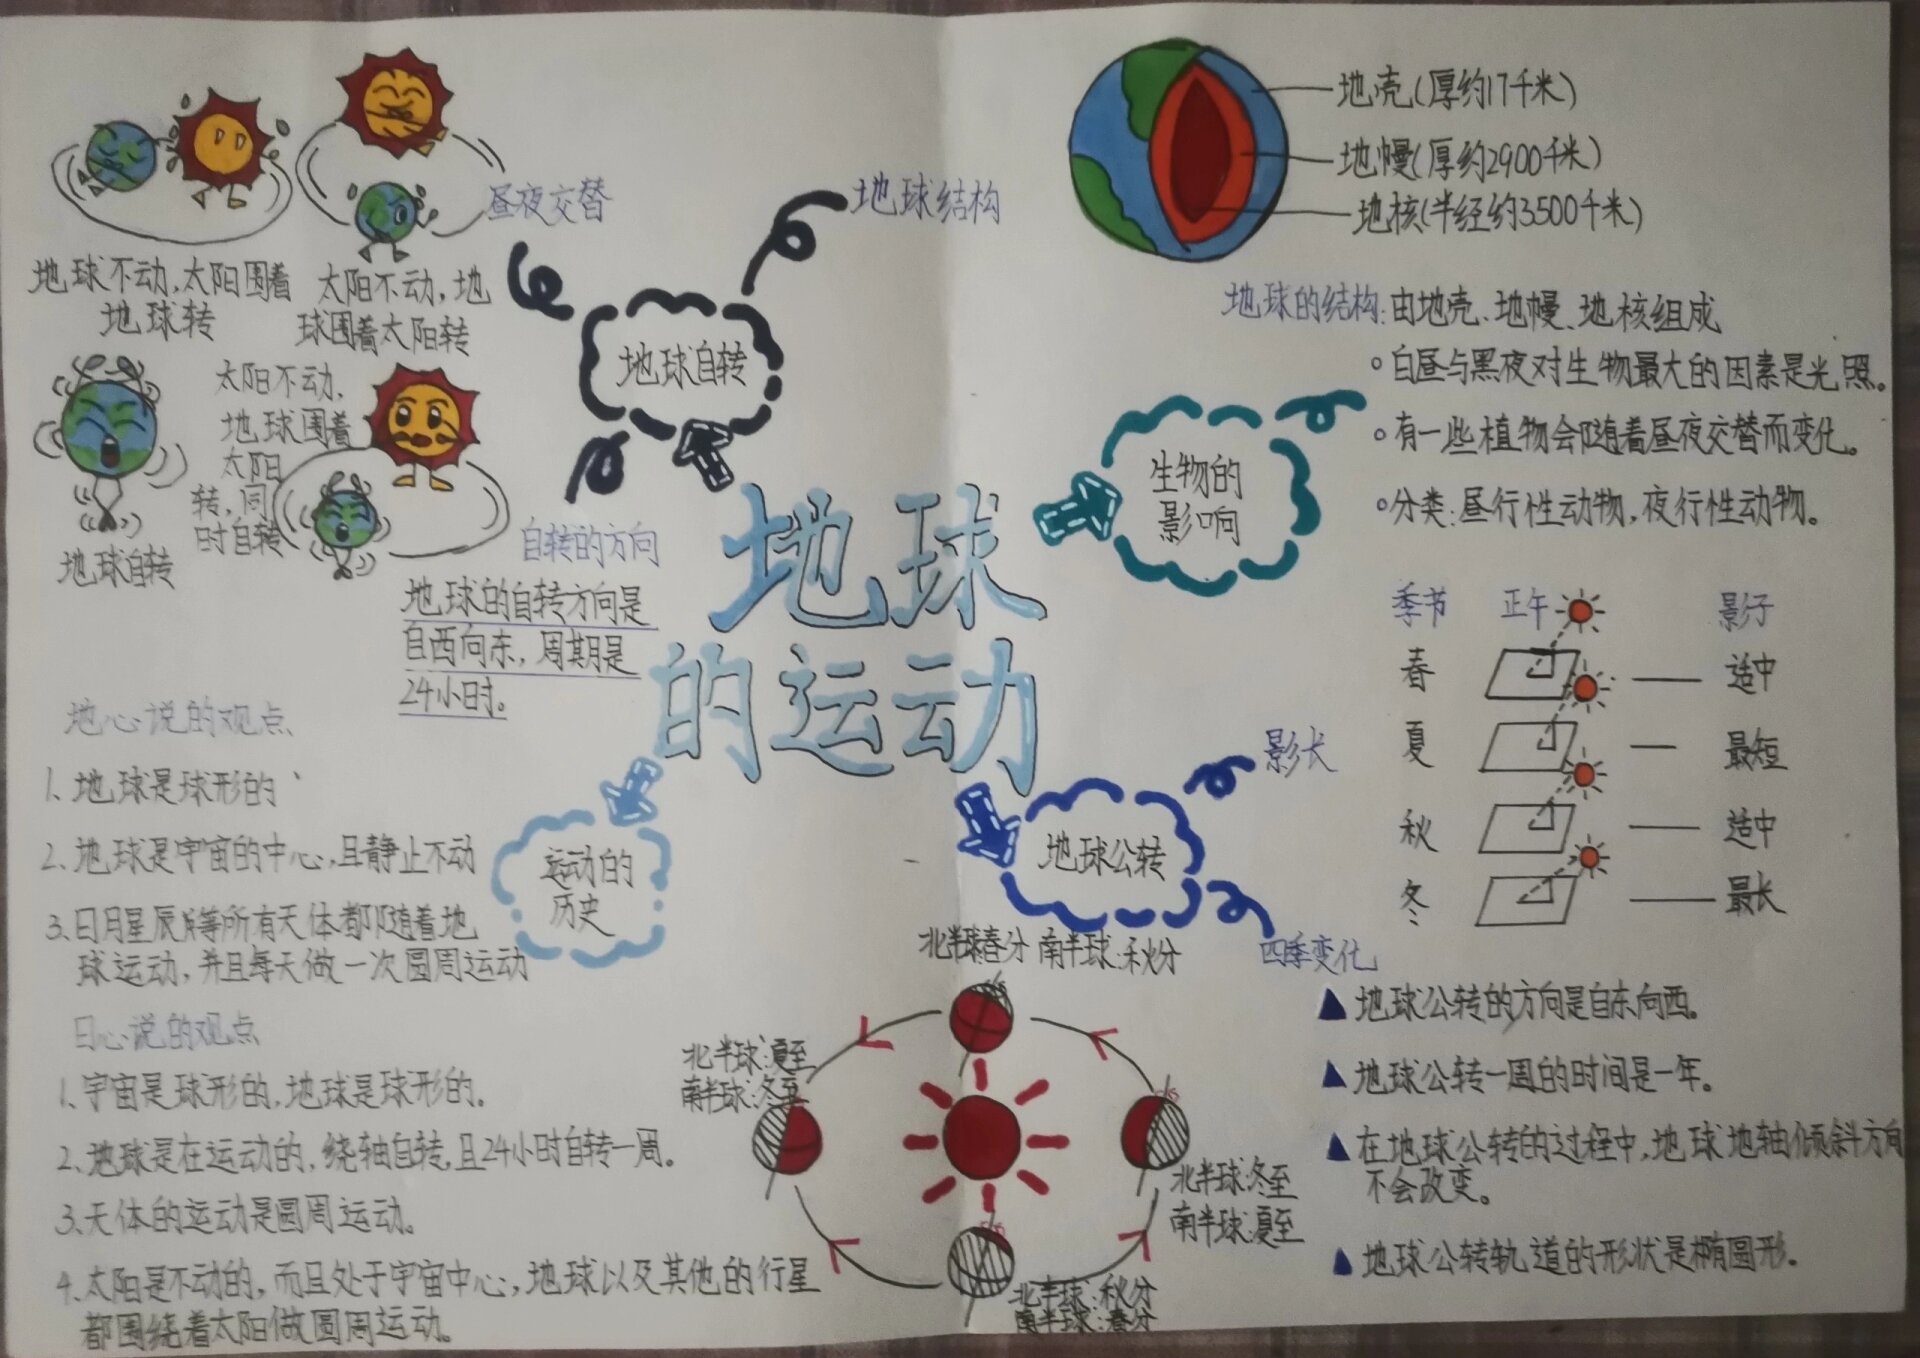 地球的运动
地球自转
地球结构
昼夜交替
自转的方向
地球不动,太阳围着
地球转
太阳不动,地
球围着太阳转
地球自转
太阳不动,
地球围着
太阳
转,同
时自转
地球的自转方向是
自西向东,周期是
24小时。
地壳(厚约17千米)
地幔(厚约2900千米)
地核(半经约3500千米)
地球的结构:由地壳、地幔、地核组成
生物的
影响
白昼与黑夜对生物最大的因素是光照。
有一些植物会随着昼夜交替而变化。
分类:昼行性动物,夜行性动物。
运动的
历史
地心说的观点
1、地球是球形的
2、地球是宇宙的中心,且静止不动
3、日月星辰等所有天体都随着地
球运动,并且每天做一次圆周运动
日心说的观点
1、宇宙是球形的,地球是球形的。
2、地球是在运动的,绕轴自转,且24小时自转一周。
3、天体的运动是圆周运动。
4、太阳是不动的,而且处于宇宙中心,地球以及其他的行星
都围绕着太阳做圆周运动。
地球公转
影长
四季变化
季节 正午 影子
春 适中
夏 最短
秋 适中
冬 最长
北半球春分 南半球:秋分
北半球:夏至
南半球:冬至
北半球:冬至
南半球:夏至
北半球:秋分
南半球:春分
地球公转的方向是自东向西。
地球公转一周的时间是一年。
在地球公转的过程中,地球地轴倾斜方向
不会改变。
地球公转轨道的形状是椭圆形.